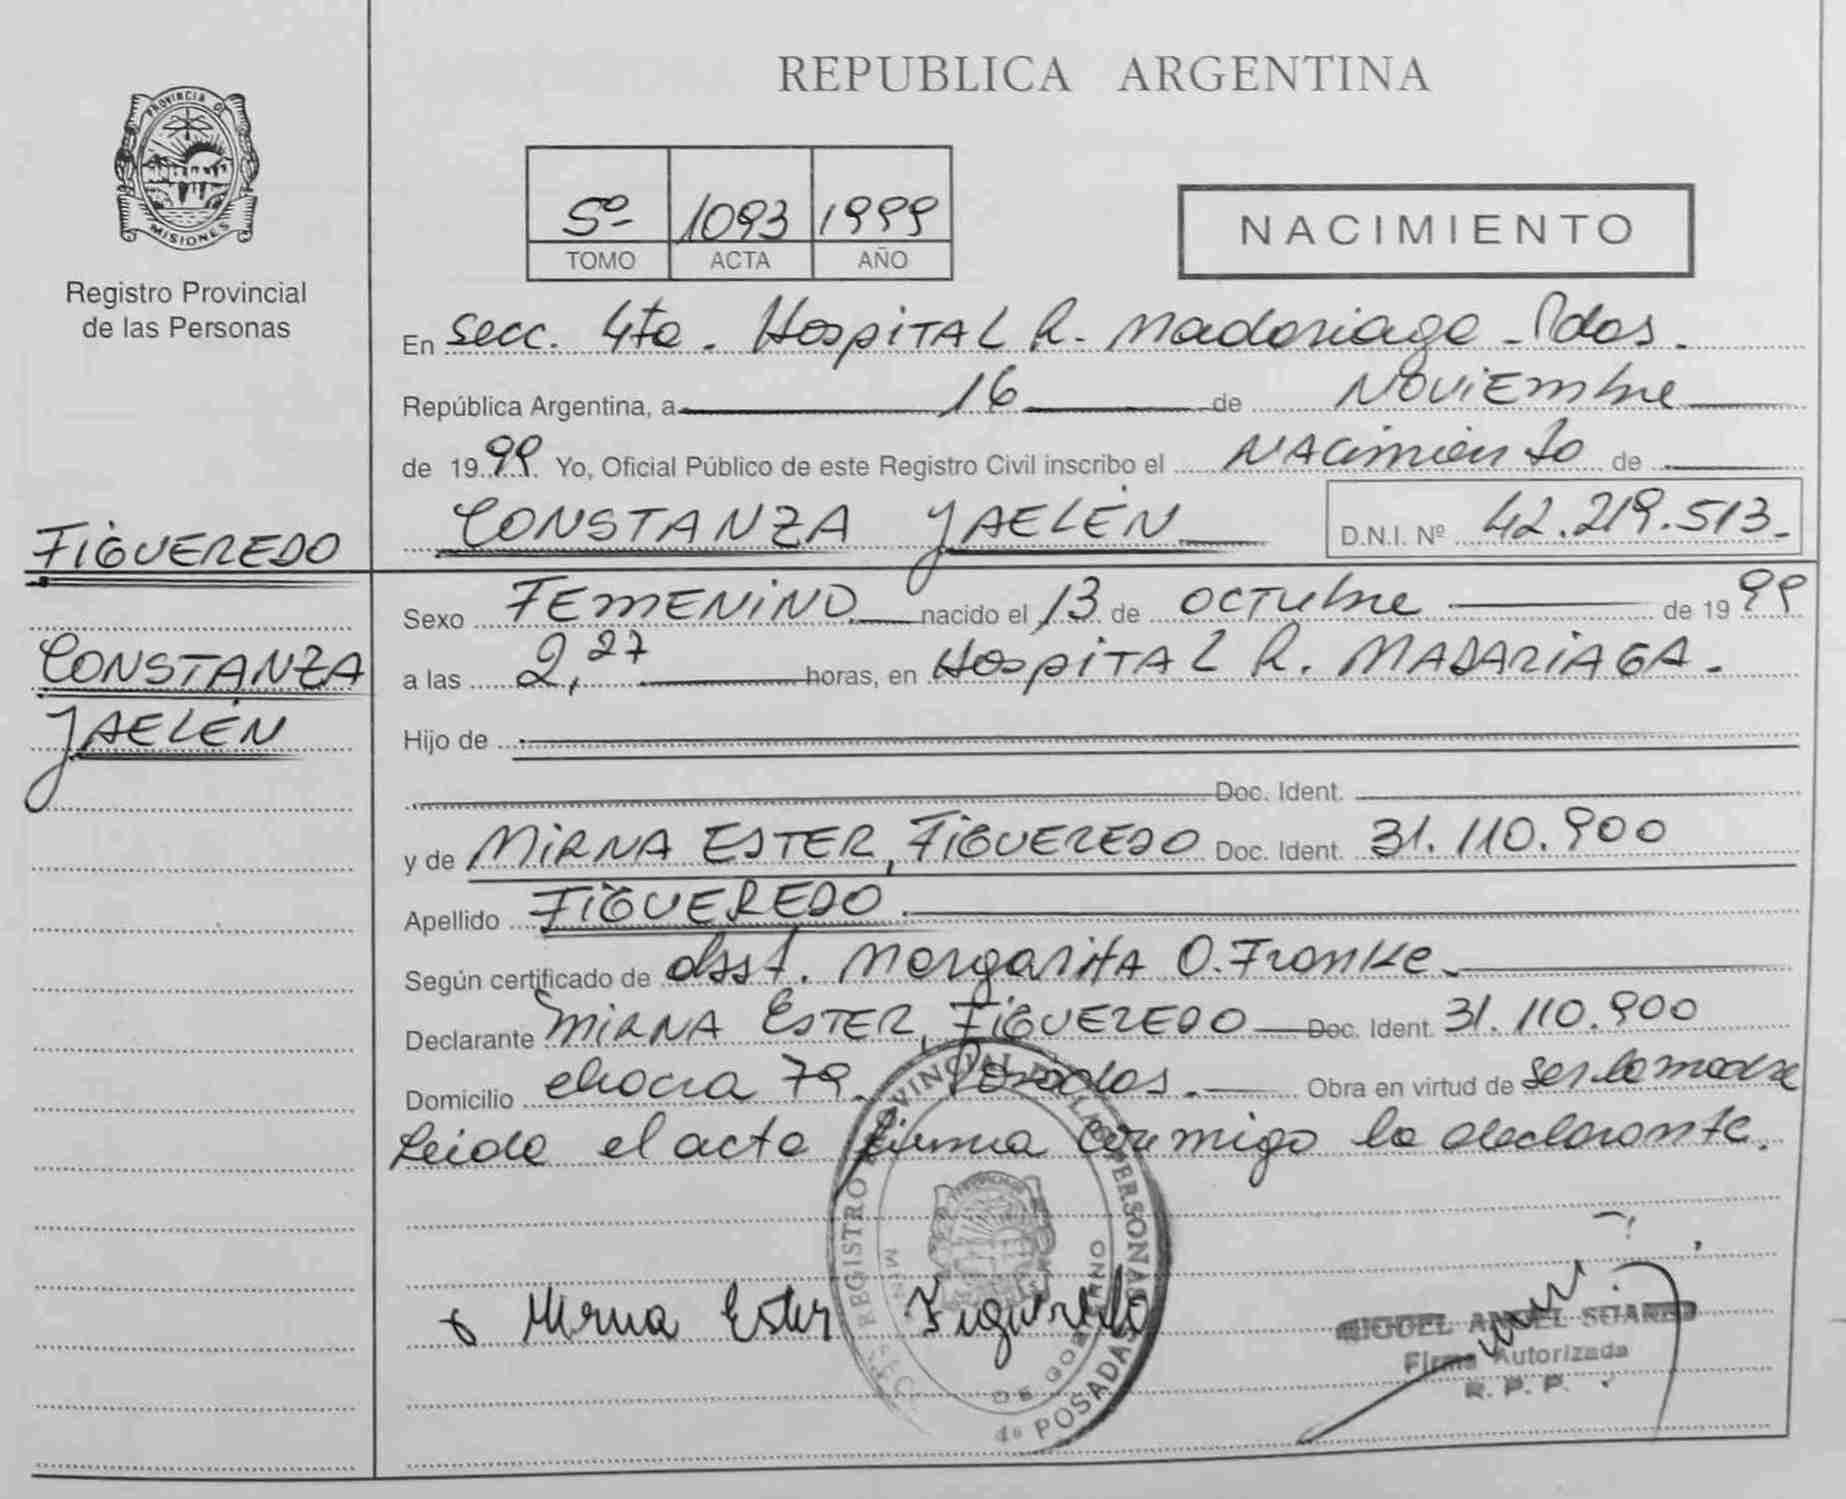 REPUBLICA ARGENTINA
PROVINCIA DE
MISIONES
Registro Provincial
de las Personas
5º 1093 1999
TOMO ACTA AÑO
NACIMIENTO
En Secc. 4ta. Hospital R. Madariaga - Pdas.
República Argentina, a 16 de Noviembre
de 1999 Yo, Oficial Público de este Registro Civil inscribo el Nacimiento de
CONSTANZA JAELÉN D.N.I. Nº 42.219.513.-
FIGUEREDO
CONSTANZA
JAELÉN
Sexo FEMENINO nacido el 13 de octubre de 1999
a las 2,27 horas, en Hospital R. MADARIAGA.
Hijo de
Doc. Ident.
y de MIRNA ESTER, FIGUEREDO Doc. Ident. 31.110.900
Apellido FIGUEREDO
Según certificado de Obst. Margarita O. Franke
Declarante MIRNA ESTER, FIGUEREDO Doc. Ident. 31.110.900
Domicilio chacra 79. Posadas. Obra en virtud de ser la madre
Leida el acta firma conmigo la declarante.
REGISTRO PROVINCIAL DE LAS PERSONAS
MIN. DE GOBIERNO
SECC. 4º POSADAS
x Mirna Ester Figueredo
MIGUEL ANGEL SUAREZ
Firma Autorizada
R. P. P.